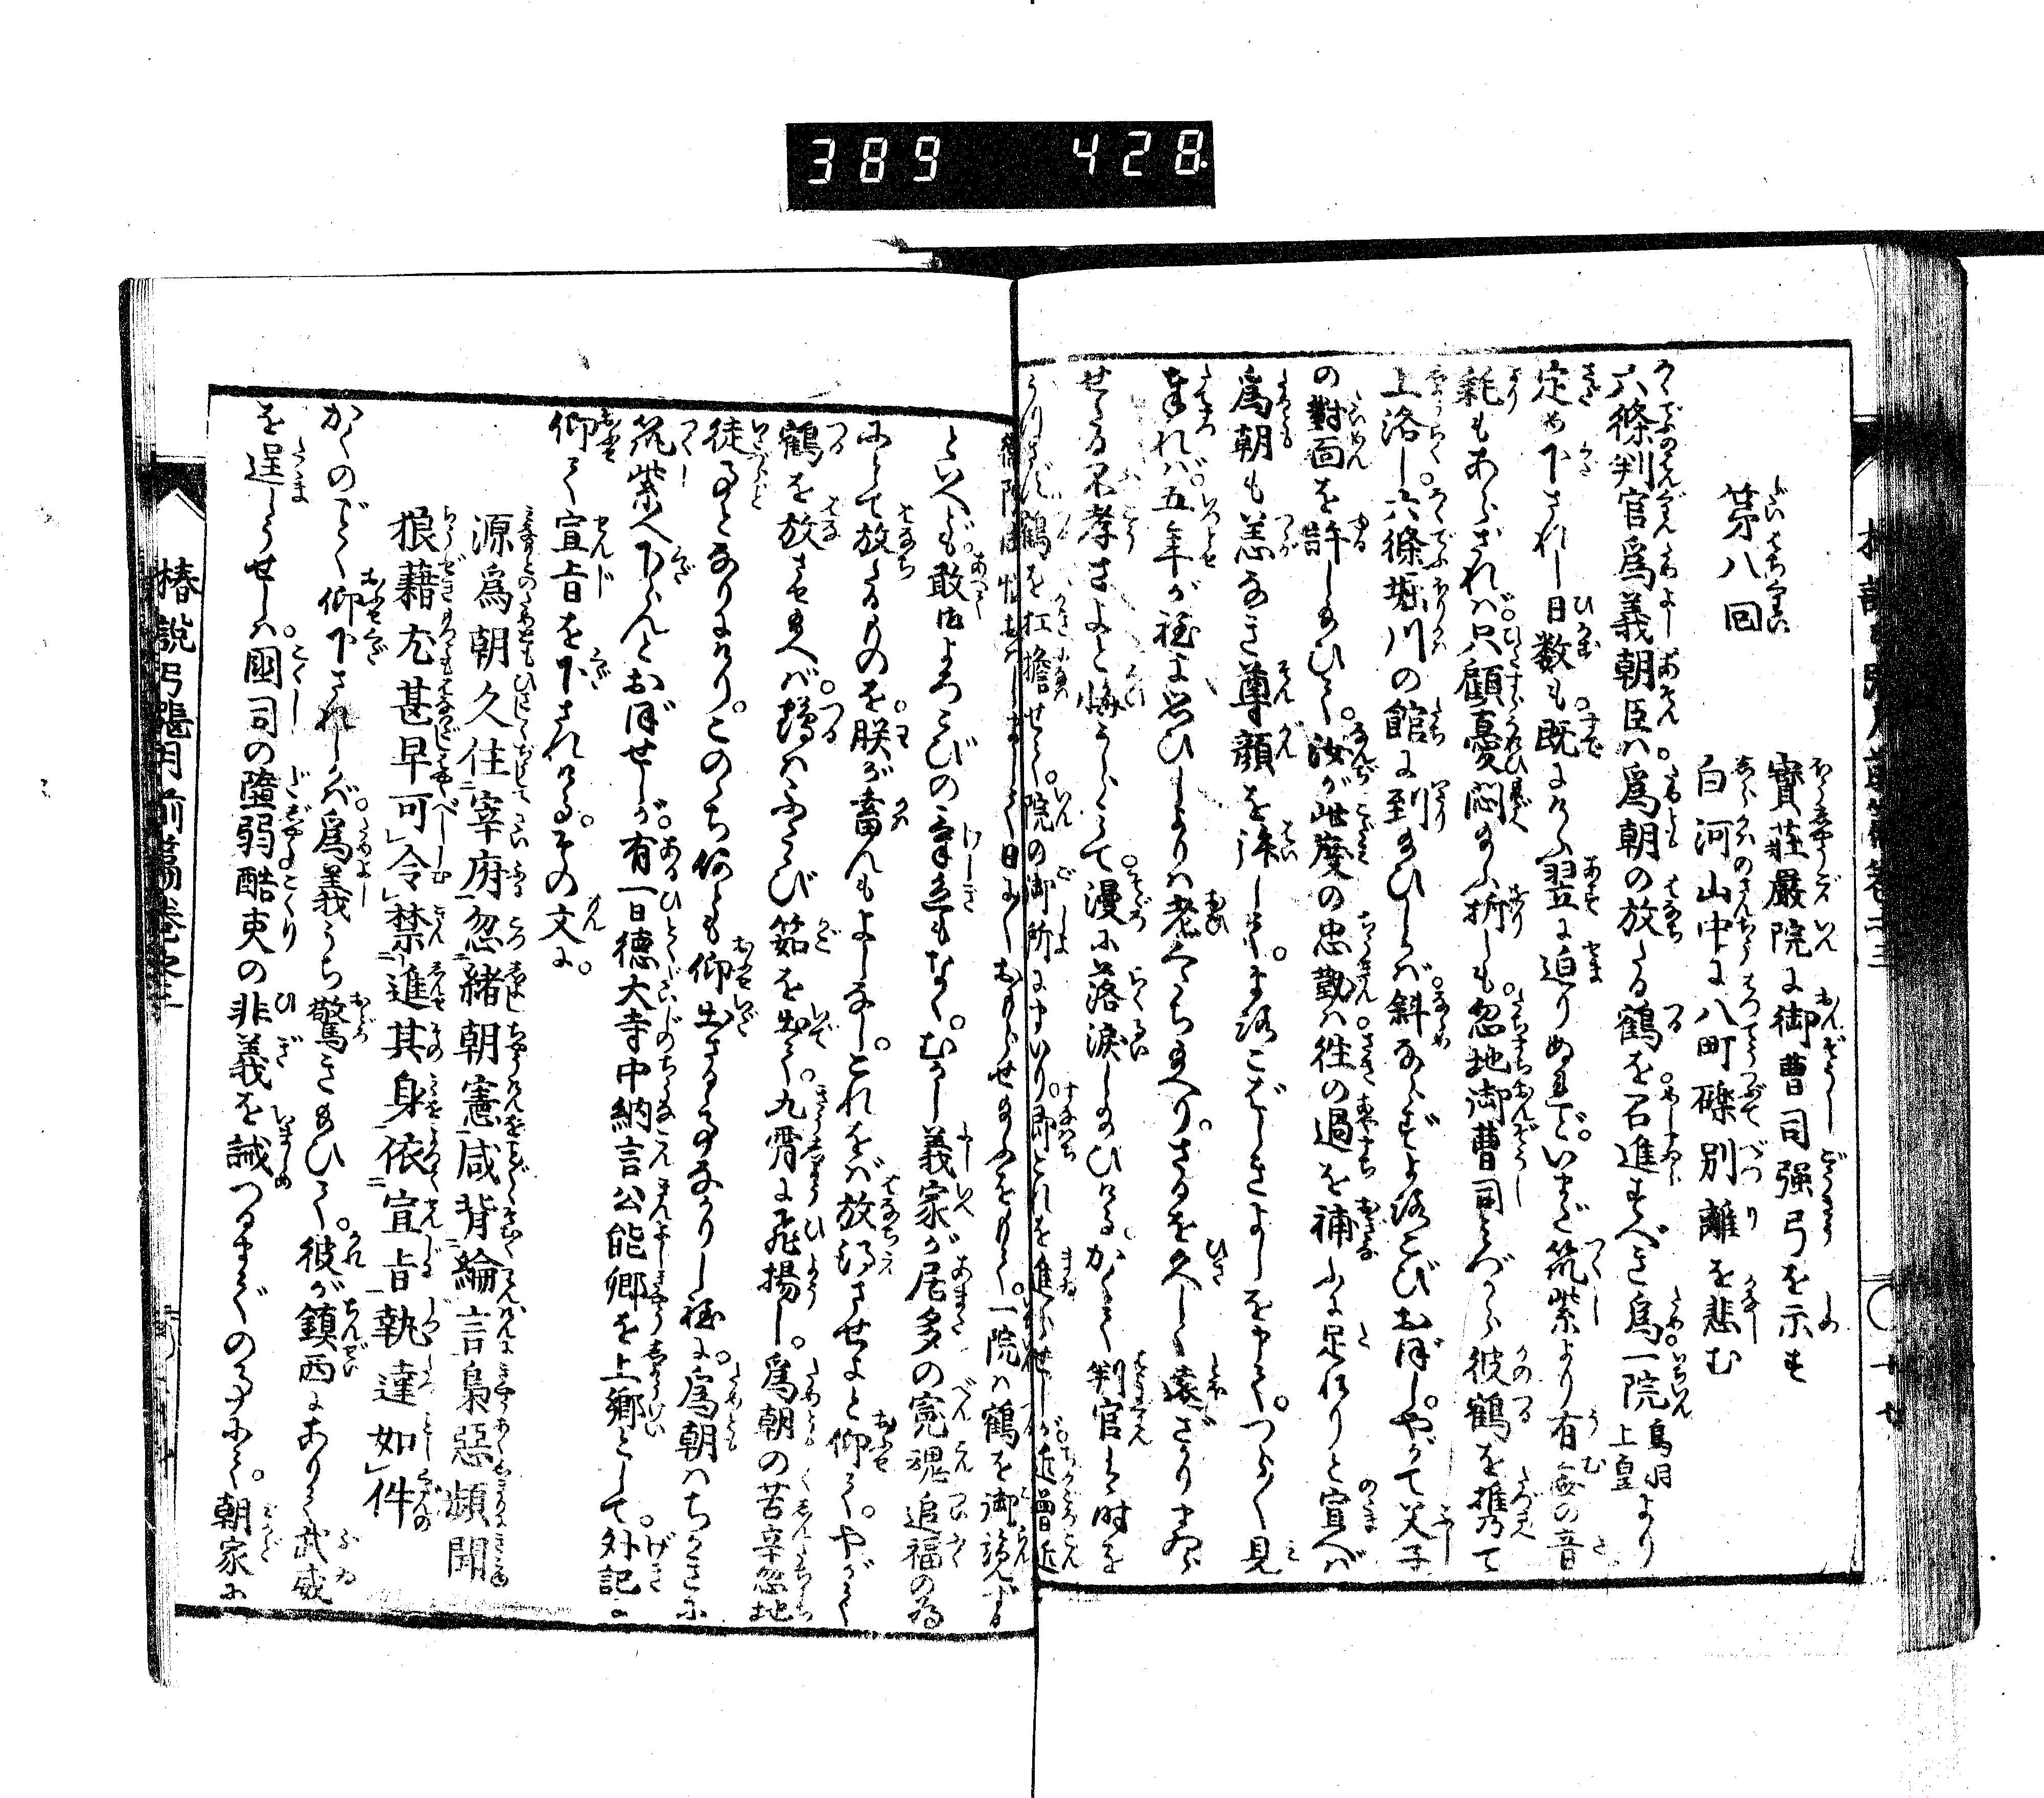 389 428
第八回
寳莊嚴院に御曹司强弓を示す
白河山中に八町礫別離を悲む
六條判官爲義朝臣ハ。爲朝の放たる鶴を召進すべき爲。一院鳥羽上皇より
定め下されし日数も。既にけふ翌に迫りぬれど。いまだ筑紫より有無の音
耗もあらざれバ。只顧憂悶給ふ折しも。忽地御曹司みづから彼鶴を携て
上洛し。六條堀川の館に到給ひしかバ。斜ならずよろこびおぼし。やがて父子
の對面を許し給ひて。汝が此度の忠勤ハ徃の過を補ふに足れりと宣へバ
爲朝も恙なき尊顔を拜して。よろこばしきよしをまうして。つらつら見
奉れバ。五年が程に思ひしよりハ老くだち給へり。さるを久しく遠ざかりまゐら
せたる不孝さよと悔うらみて。漫に落涙し給ひける。かくて判官は時を
うつさず鶴を扛擔せて。院の御所にまいり。即これを進らせしが。近曾近
といへども。敢御よろこびの氣色もなく。むかし義家が居多の寃魂追福の為
にとて放たるものを。朕が畜んもよしなし。これをバ放得させよと仰て。やがて
鶴を放させ給へバ。鶴ハふたゝび笯を出て。九霄に飛揚し。爲朝の苦辛忽地
徒事となりにけり。このゝち何とも仰出さるゝ事なかりし程に。爲朝ハちかきに
筑紫へ下らんとおぼせしが。有一日徳大寺中納言公能卿を上卿として。外記に
仰て宣旨を下されける。その文に。
源爲朝久住宰府忽緒朝憲咸背綸言梟惡頻聞
狼藉尤甚早可令禁進其身依宣旨執達如件
かくのごとく仰下されしかバ。爲義うち驚き給ひて。彼が鎮西にありて武威
を逞しうせしハ。國司の墮弱酷吏の非義を誡つるまでの事にて。朝家に
椿說弓張月前篇卷之三